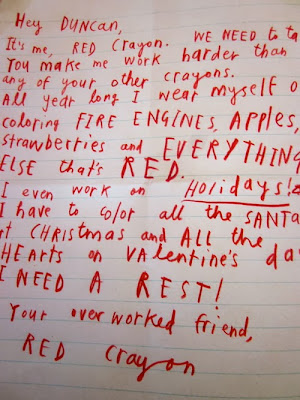 Hey DUNCAN,
It's me, RED Crayon. WE NEED to ta
You make me work harder than
any of your other crayons.
All year long I wear myself o
coloring FIRE ENGINES, APPLES,
strawberries and EVERYTHING
ELSE that's RED.
I even work on HOLidays!
I have to color all the SANTA
at CHRistmas and ALL the
HEARTS on VALentine's da
I NEED A REST!
Your overworked friend,
RED crayon